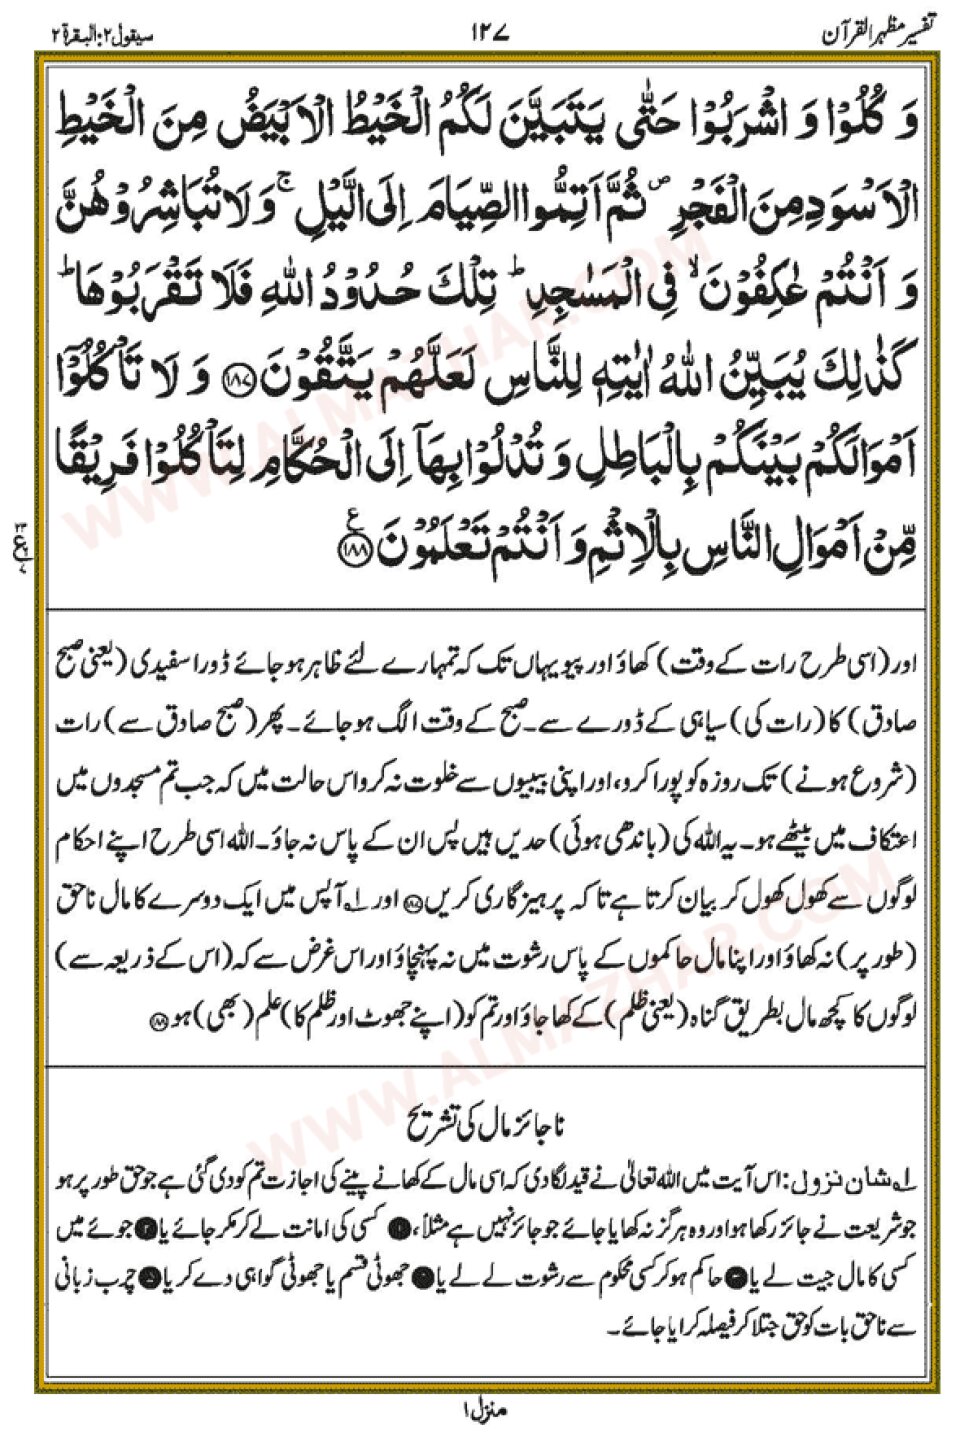 تفسیر مظہر القرآن
۱۲۷
سیقول ۲: البقرة ۲
وَ كُلُوْا وَ اشْرَبُوْا حَتّٰى يَتَبَيَّنَ لَكُمُ الْخَيْطُ الْاَبْيَضُ مِنَ الْخَيْطِ
الْاَسْوَدِ مِنَ الْفَجْرِ ۪ ثُمَّ اَتِمُّوا الصِّيَامَ اِلَى الَّيْلِ ۚ وَ لَا تُبَاشِرُوْهُنَّ
وَ اَنْتُمْ عٰكِفُوْنَ ۙ فِي الْمَسٰجِدِ ؕ تِلْكَ حُدُوْدُ اللّٰهِ فَلَا تَقْرَبُوْهَا ؕ
كَذٰلِكَ يُبَيِّنُ اللّٰهُ اٰيٰتِهٖ لِلنَّاسِ لَعَلَّهُمْ يَتَّقُوْنَ ۱۸۷ وَ لَا تَاْكُلُوْۤا
اَمْوَالَكُمْ بَيْنَكُمْ بِالْبَاطِلِ وَ تُدْلُوْا بِهَاۤ اِلَى الْحُكَّامِ لِتَاْكُلُوْا فَرِيْقًا
مِّنْ اَمْوَالِ النَّاسِ بِالْاِثْمِ وَ اَنْتُمْ تَعْلَمُوْنَ ۱۸۸ ع
اور (اسی طرح رات کے وقت) کھاؤ اور پیو یہاں تک کہ تمہارے لئے ظاہر ہو جائے ڈورا سفیدی (یعنی صبح
صادق) کا (رات کی) سیاہی کے ڈورے سے۔ صبح کے وقت الگ ہو جائے۔ پھر (صبح صادق سے) رات
(شروع ہونے) تک روزہ کو پورا کرو، اور اپنی بیبیوں سے خلوت نہ کرو اس حالت میں کہ جب تم مسجدوں میں
اعتکاف میں بیٹھے ہو۔ یہ اللہ کی (باندھی ہوئی) حدیں ہیں پس ان کے پاس نہ جاؤ۔ اللہ اسی طرح اپنے احکام
لوگوں سے کھول کھول کر بیان کرتا ہے تا کہ پرہیزگاری کریں ۱۸۷ اور ۱ آپس میں ایک دوسرے کا مال ناحق
(طور پر) نہ کھاؤ اور اپنا مال حاکموں کے پاس رشوت میں نہ پہنچاؤ اور اس غرض سے کہ (اس کے ذریعہ سے)
لوگوں کا کچھ مال بطریق گناہ (یعنی ظلم) کے کھا جاؤ اور تم کو (اپنے جھوٹ اور ظلم کا) علم (بھی) ہو ۱۸۸
ناجائز مال کی تشریح
۱ شان نزول: اس آیت میں اللہ تعالیٰ نے قید لگا دی کہ اسی مال کے کھانے پینے کی اجازت تم کو دی گئی ہے جو حق طور پر ہو
جو شریعت نے جائز رکھا ہو اور وہ ہرگز نہ کھایا جائے جو جائز نہیں ہے مثلاً، ۱ کسی کی امانت لے کر مکر جائے یا ۲ جوئے میں
کسی کا مال جیت لے یا ۳ حاکم ہو کر کسی محکوم سے رشوت لے لے یا ۴ جھوٹی قسم یا جھوٹی گواہی دے کر یا ۵ چرب زبانی
سے ناحق بات کو حق جتلا کر فیصلہ کرایا جائے۔
منزل ۱
WWW.ALMAZHAR.COM
WWW.ALMAZHAR.COM